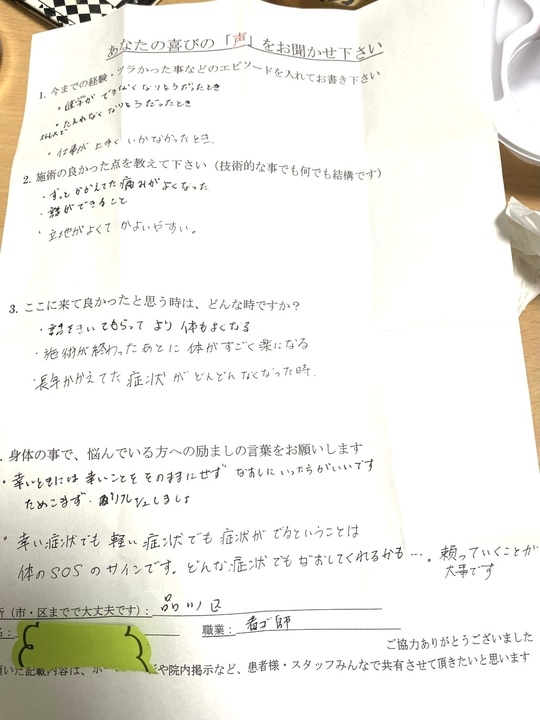 あなたの喜びの「声」をお聞かせ下さい
1. 今までの経験・ツラかった事などのエピソードを入れてお書き下さい
・仕事が上手くいかなかったとき.
2. 施術の良かった点を教えて下さい(技術的な事でも何でも結構です)
・ずっとかかえてた痛みがよくなった
・話ができること
・立地がよくてかよいやすい。
3. ここに来て良かったと思う時は、どんな時ですか?
・話をきいてもらって より 体もよくなる
・施術が終わったあとに 体がすごく楽になる
・長年かかえてた 症状 が どんどん なくなった時.
. 身体の事で、悩んでいる方への励ましの言葉をお願いします
・辛いときには 辛いことを そのままにせず なおしにいった方がいいです
ためこまず. リフレッシュしましょ
。辛い症状でも 軽い 症状でも 症状が でるということは
体のSOSのサインです。どんな症状でもなおしてくれるかも…。頼っていくことが
大事です
所(市・区までで大丈夫です): 品川区
職業: 看ゴ師
ご協力ありがとうございました
や院内掲示など、患者様・スタッフみんなで共有させて頂きたいと思います